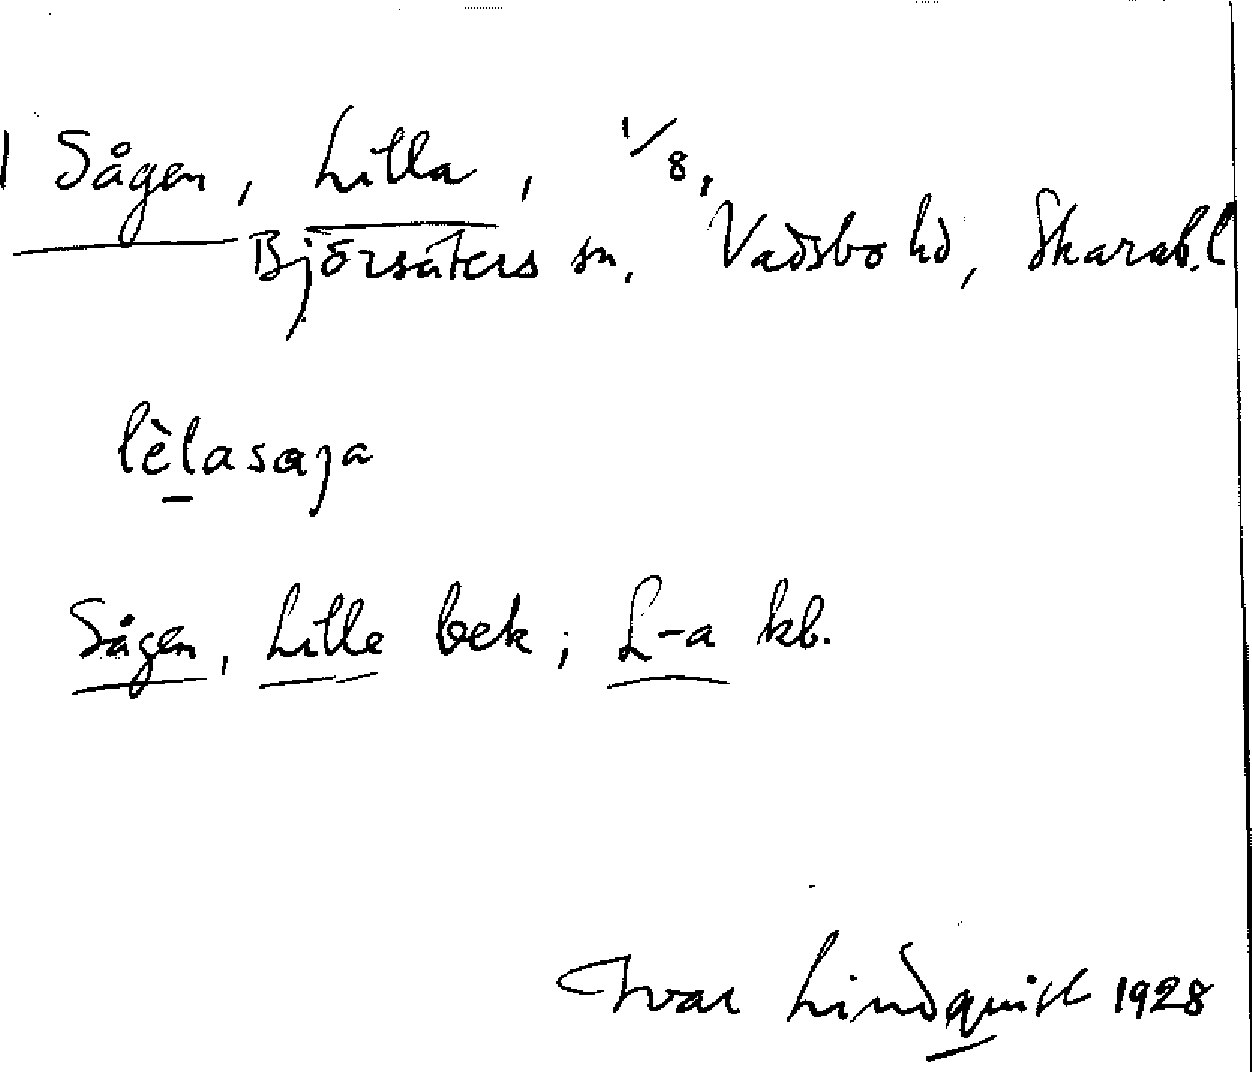 1 Sågen, Lilla, 1/8,
Björsäters sn, Vadsbo hd, Skarab.l
lèlasaja
Sågen, Lille bek; L-a kb.
Ivar Lindquist 1928